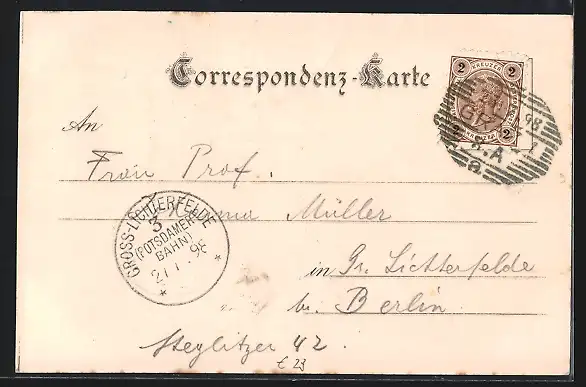 Correspondenz-Karte
2 KREUZER 2
2 2
98
8.A
An
Frau Prof.
Müller
GROSS-LICHTERFELDE
3
(POTSDAMER
BAHN)
21 1 98
in Gr. Lichterfelde
br. Berlin
Steglitzer 42.
£ 23